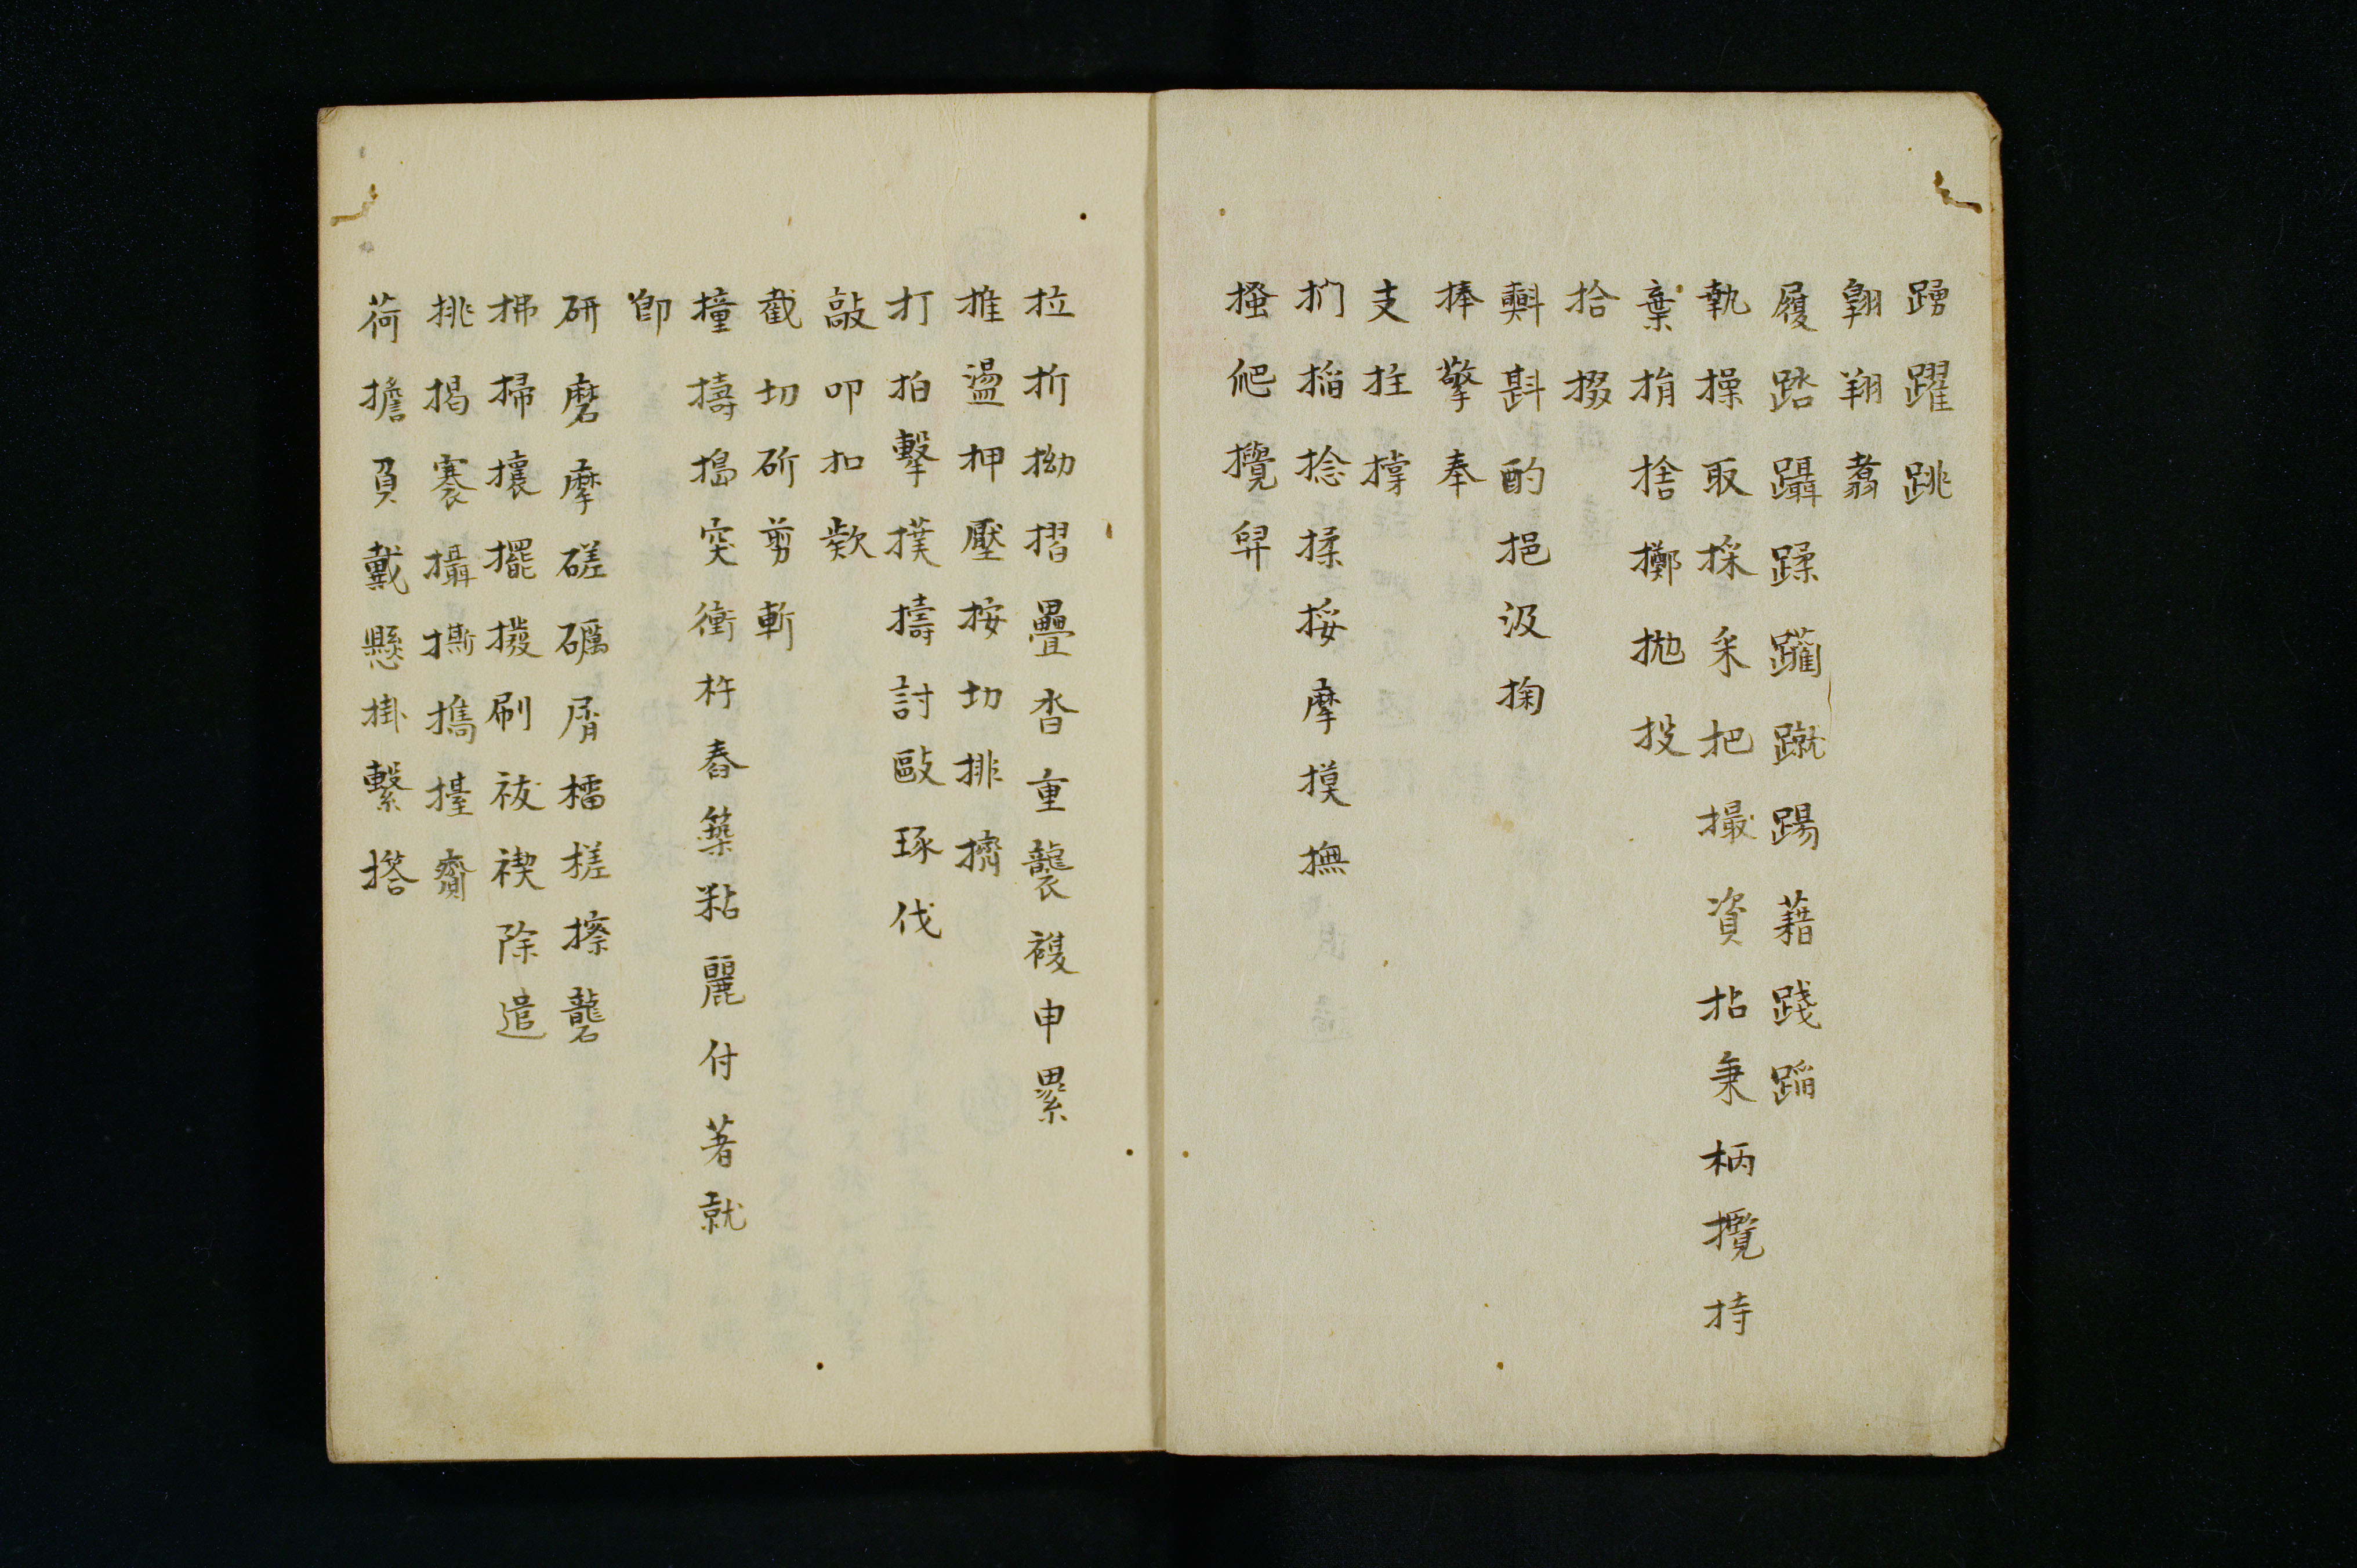 踴躍跳
翺翔翥
履踏躡蹂躪蹴踢藉踐蹈
執操取採采把撮資拈秉柄攬持
棄捐捨擲抛投
拾掇
斟酌挹汲掬
捧擎奉
支拄撑
捫搯捻揉挼摩摸撫
搔爬攪
拉折拗摺疊沓重襲複申累
推盪押壓按切排擠
打拍擊撲擣討毆琢伐
敲叩扣款
截切斫剪斬
撞擣搗突衝杵舂築粘麗付著就
卽
研磨摩磋礪屑擂搓擦礱
拂掃攘擺撥刷祓禊除遣
挑揭褰攝撕攜擡齎
荷擔負戴懸掛繫搭